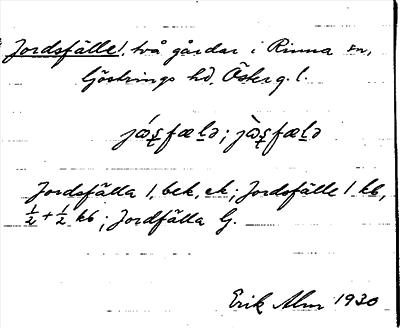 Jordsfälle 1. två gårdar i Rinna sn,
Göstrings hd, Österg. l.
Jordsfälla 1, bek, ek; Jordsfälle 1 kb,
½ + ½ kb; Jordfälla G.
Erik Alm 1930